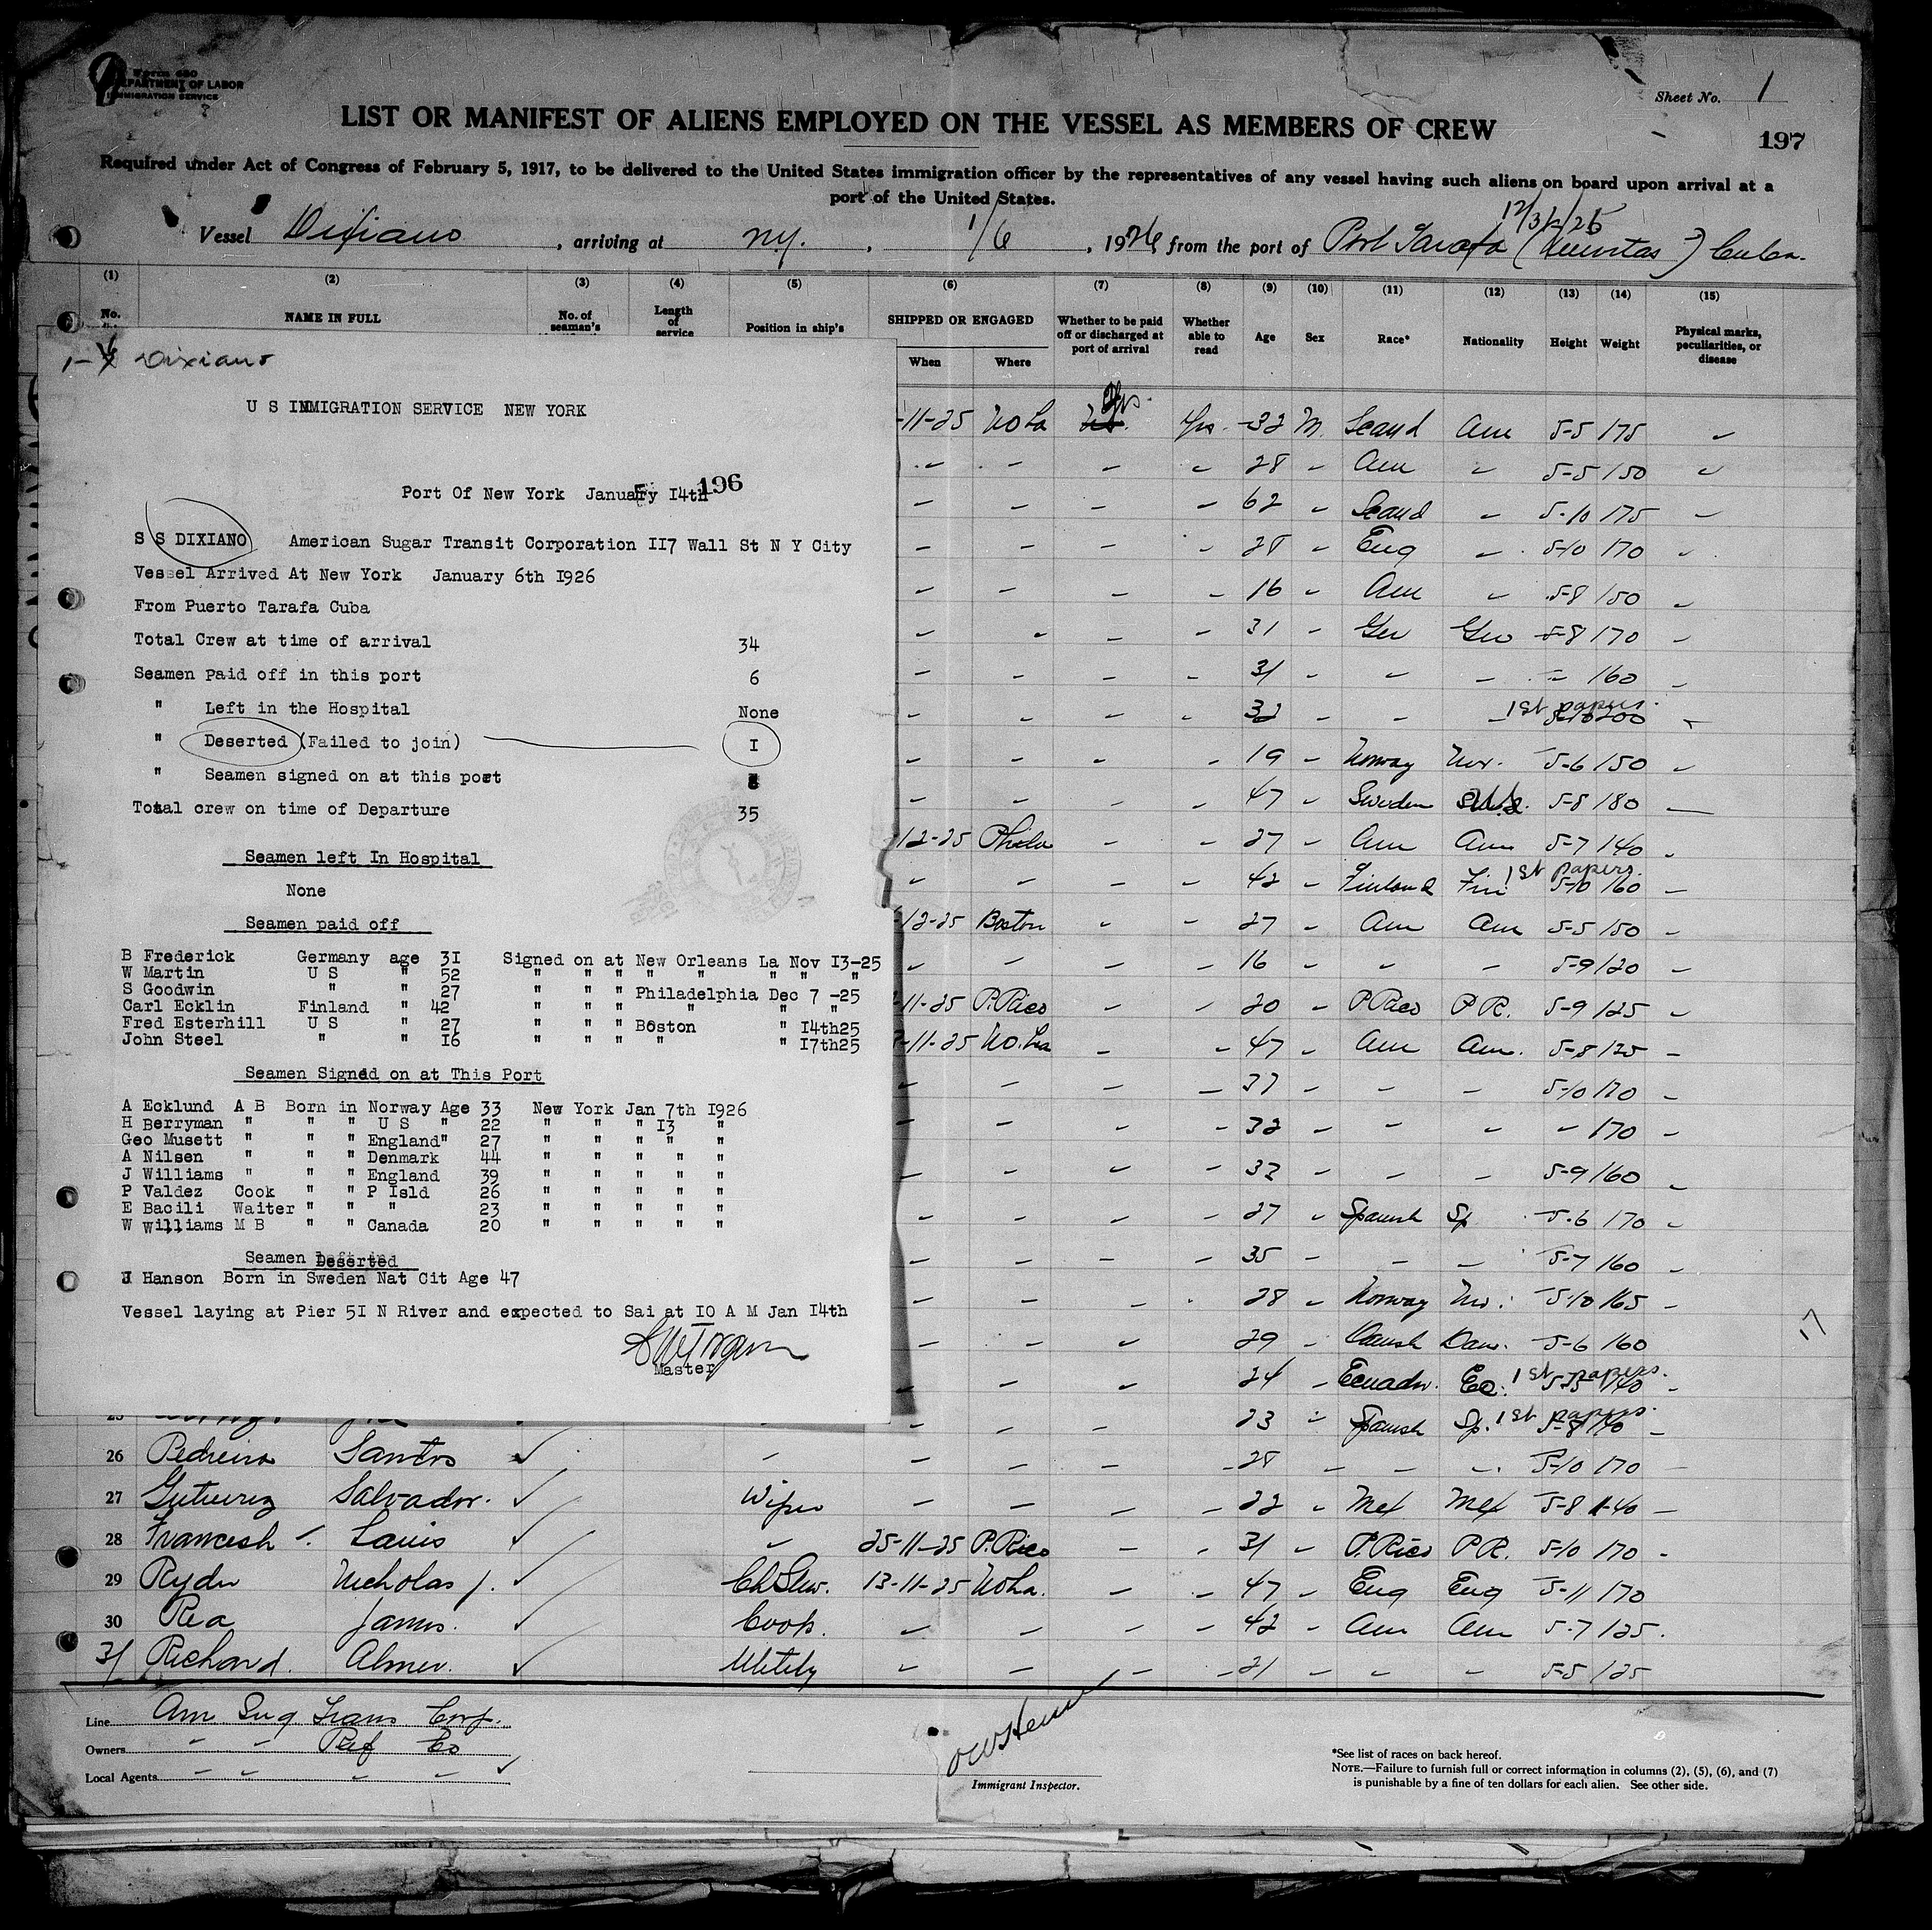 Form 680
DEPARTMENT OF LABOR
IMMIGRATION SERVICE
Sheet No. 1
LIST OR MANIFEST OF ALIENS EMPLOYED ON THE VESSEL AS MEMBERS OF CREW
197
Required under Act of Congress of February 5, 1917, to be delivered to the United States immigration officer by the representatives of any vessel having such aliens on board upon arrival at a
port of the United States.
12/31/25
Vessel Dixiano, arriving at N.Y., 1/6, 1926 from the port of Port Tarafa (Nuevitas) Cuba.
(1) (2) (3) (4) (5) (6) (7) (8) (9) (10) (11) (12) (13) (14) (15)
No. NAME IN FULL No. of seaman's Length of service Position in ship's SHIPPED OR ENGAGED When Where Whether to be paid off or discharged at port of arrival Whether able to read Age Sex Race* Nationality Height Weight Physical marks, peculiarities, or disease
1-6 Dixiano
U S IMMIGRATION SERVICE NEW YORK
Port Of New York January I4th 196
S S DIXIANO American Sugar Transit Corporation II7 Wall St N Y City
Vessel Arrived At New York January 6th I926
From Puerto Tarafa Cuba
Total Crew at time of arrival 34
Seamen paid off in this port 6
" Left in the Hospital None
" Deserted (Failed to join) I
" Seamen signed on at this post
Total crew on time of Departure 35
Seamen left In Hospital
None
Seamen paid off
B Frederick Germany age 3I Signed on at New Orleans La Nov I3-25
W Martin U S " 52 " " " " " " " "
S Goodwin " " 27 " " " Philadelphia Dec 7 -25
Carl Ecklin Finland " 42 " " " " " "
Fred Esterhill U S " 27 " " " Boston " I4th25
John Steel " " I6 " " " " " I7th25
Seamen Signed on at This Port
A Ecklund A B Born in Norway Age 33 New York Jan 7th I926
H Berryman " " " U S " 22 " " " I3 "
Geo Musett " " " England" 27 " " " " "
A Nilsen " " " Denmark 44 " " " " "
J Williams " " " England 39 " " " " "
P Valdez Cook " " P Isld 26 " " " " "
E Bacili Waiter " " " 23 " " " " "
W williams M B " " Canada 20 " " " " "
Seamen Deserted
J Hanson Born in Sweden Nat Cit Age 47
Vessel laying at Pier 5I N River and expected to Sai at IO A M Jan I4th
Master
-11-25 NO La Yes. Yes - 32 M. Scand Am 5-5 175
28 Am 5-5 150
62 Scand 5-10 175
28 Eng 5-10 170
16 Am 5-8 150
31 Ger Ger 5-8 170
31 160
32 1st papers. 200
19 Norway Nor. 5-6 150
47 Sweden 5-8 180
12-25 Phila 27 Am Am 5-7 140
42 Finland Fin 1st papers. 5-10 160
12-25 Boston 27 Am Am 5-5 150
16 5-9 120
-11-25 P. Rico 20 P Rico P R. 5-9 125
-11-25 NO. La 47 Am Am. 5-8 125
37 5-10 170
32 170
32 5-9 160
27 Spanish Sp 5-6 170
35 5-7 160
28 Norway Nor. 5-10 165
29 Danish Dan. 5-6 160
17
24 Ecuador. Ec. 1st papers. 5-5 140
25 23 Spanish Sp. 1st papers. 5-8 140
26 Pedreira Santos 28 5-10 170
27 Gutierrez Salvador. Wiper 22 Mex Mex 5-8 140
28 Francesh Louis 25-11-25 P. Rico 31 P. Rico P R. 5-10 170
29 Ryder Nicholas J. Ch Stew. 13-11-25 NO La. 47 Eng Eng 5-11 170
30 Rea James. Cook. 42 Am Am 5-7 125.
31 Richard. Almer. Utility 21 5-5 125
Line Am Sug Trans Corp.
Owners " " Ref Co
Local Agents
Immigrant Inspector.
*See list of races on back hereof.
NOTE.—Failure to furnish full or correct information in columns (2), (5), (6), and (7)
is punishable by a fine of ten dollars for each alien. See other side.